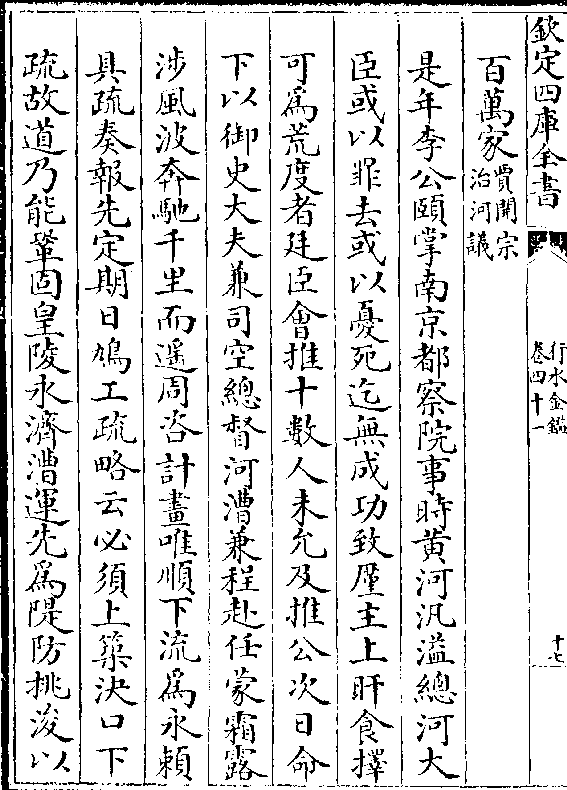 欽定四庫全書
行水金鑑
卷四十一
十七
百萬家賈開宗
治河議
是年李公頤掌南京都察院事時黄河汎溢總河大
臣或以罪去或以憂死迄無成功致厪主上旰食擇
可為荒度者廷臣會推十數人未允及推公次日命
下以御史大夫兼司空總督河漕兼程赴任蒙霜露
涉風波奔馳千里而遥周咨計畫唯順下流為永賴
具疏奏報先定期日鳩工疏略云必須上築决口下
疏故道乃能鞏固皇陵永濟漕運先為隄防挑浚以